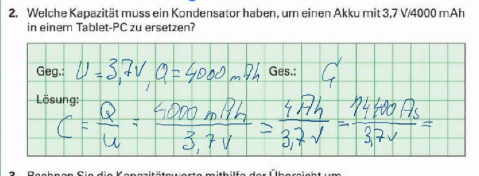 2. Welche Kapazität muss ein Kondensator haben, um einen Akku mit 3,7 V/4000 mAh
in einem Tablet-PC zu ersetzen?
Geg.: U = 3,7V, Q = 4000 mAh Ges.: C
Lösung:
C = Q/U = 4000 mAh/3,7V = 4Ah/3,7V = 14400As/3,7V =
3. Rechnen Sie die Kapazitätswerte mithilfe der Übersicht um